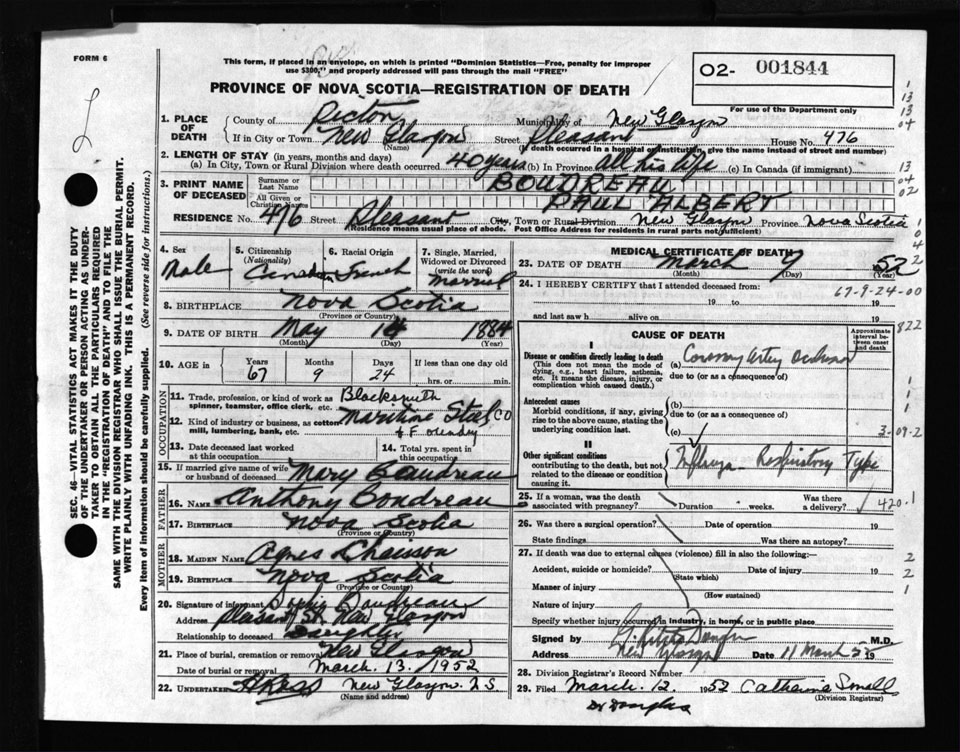 FORM 6
This form, if placed in an envelope, on which is printed "Dominion Statistics—Free, penalty for improper
use $300," and properly addressed will pass through the mail "FREE"
PROVINCE OF NOVA SCOTIA—REGISTRATION OF DEATH
O2- 001844
For use of the Department only
1. PLACE OF DEATH County of Pictou Municipality of New Glasgow
If in City or Town New Glasgow Street Pleasant House No. 476
(Name) (If death occurred in a hospital or institution, give the name instead of street and number)
2. LENGTH OF STAY (in years, months and days)
(a) In City, Town or Rural Division where death occurred 40 years (b) In Province all his life (c) In Canada (if immigrant)
3. PRINT NAME OF DECEASED Surname or Last Name BOUDREAU
All Given or Christian Names PAUL ALBERT
RESIDENCE No. 416 Street Pleasant City, Town or Rural Division New Glasgow Province Nova Scotia
(Residence means usual place of abode. Post Office Address for residents in rural parts not sufficient)
4. Sex Male
5. Citizenship (Nationality) Canadian
6. Racial Origin French
7. Single, Married, Widowed or Divorced (write the word) Married
8. BIRTHPLACE Nova Scotia
(Province or Country)
9. DATE OF BIRTH May 14 1884
(Month) (Day) (Year)
10. AGE in Years 67 Months 9 Days 24 If less than one day old
hrs. or min.
OCCUPATION
11. Trade, profession, or kind of work as Blacksmith
spinner, teamster, office clerk, etc.
12. Kind of industry or business, as cotton Maritime Steel CO
mill, lumbering, bank, etc. & Foundry
13. Date deceased last worked at this occupation
14. Total yrs. spent in this occupation
15. If married give name of wife or husband of deceased Mary Boudreau
FATHER
16. NAME Anthony Boudreau
17. BIRTHPLACE Nova Scotia
(Province or Country)
MOTHER
18. MAIDEN NAME Agnes Chaisson
19. BIRTHPLACE Nova Scotia
(Province or Country)
20. Signature of informant Sophie Boudreau
Address Pleasant St. New Glasgow
Relationship to deceased Daughter
21. Place of burial, cremation or removal New Glasgow
Date of burial or removal March. 13. 1952
22. Undertaker New Glasgow. N.S.
(Name and address)
MEDICAL CERTIFICATE OF DEATH
23. DATE OF DEATH March 7 52
(Month) (Day) (Year)
24. I HEREBY CERTIFY that I attended deceased from:
67-9-24-00
19 to 19
and last saw h alive on 19
CAUSE OF DEATH
Approximate interval between onset and death
I
Disease or condition directly leading to death (a) Coronary Artery Occlusion
(This does not mean the mode of dying, e.g., heart failure, asthenia, etc. It means the disease, injury, or complication which caused death.)
due to (or as a consequence of)
Antecedent causes
Morbid conditions, if any, giving rise to the above cause, stating the underlying condition last.
(b)
due to (or as a consequence of)
(c) 3-09-2
II
Other significant conditions
contributing to the death, but not related to the disease or condition causing it.
Influenza - Respiratory Type
25. If a woman, was the death associated with pregnancy? Duration weeks. Was there a delivery? 420-1
26. Was there a surgical operation? Date of operation 19
State findings Was there an autopsy?
27. If death was due to external causes (violence) fill in also the following:—
Accident, suicide or homicide? Date of injury 19
(State which)
Manner of injury
(How sustained)
Nature of injury
Specify whether injury occurred in industry, in home, or in public place
Signed by M.D.
Address New Glasgow Date 11 March 52
28. Division Registrar's Record Number
29. Filed March. 12. 1952 Catherine
(Division Registrar)
Dr Douglas
SEC. 46—VITAL STATISTICS ACT MAKES IT THE DUTY
OF THE UNDERTAKER OR PERSON ACTING AS UNDERTAKER
TO OBTAIN ALL THE PARTICULARS REQUIRED
IN THE "REGISTRATION OF DEATH" AND TO FILE THE
SAME WITH THE DIVISION REGISTRAR WHO SHALL ISSUE THE BURIAL PERMIT.
WRITE PLAINLY WITH UNFADING INK. THIS IS A PERMANENT RECORD.
Every item of information should be carefully supplied. (See reverse side for instructions.)